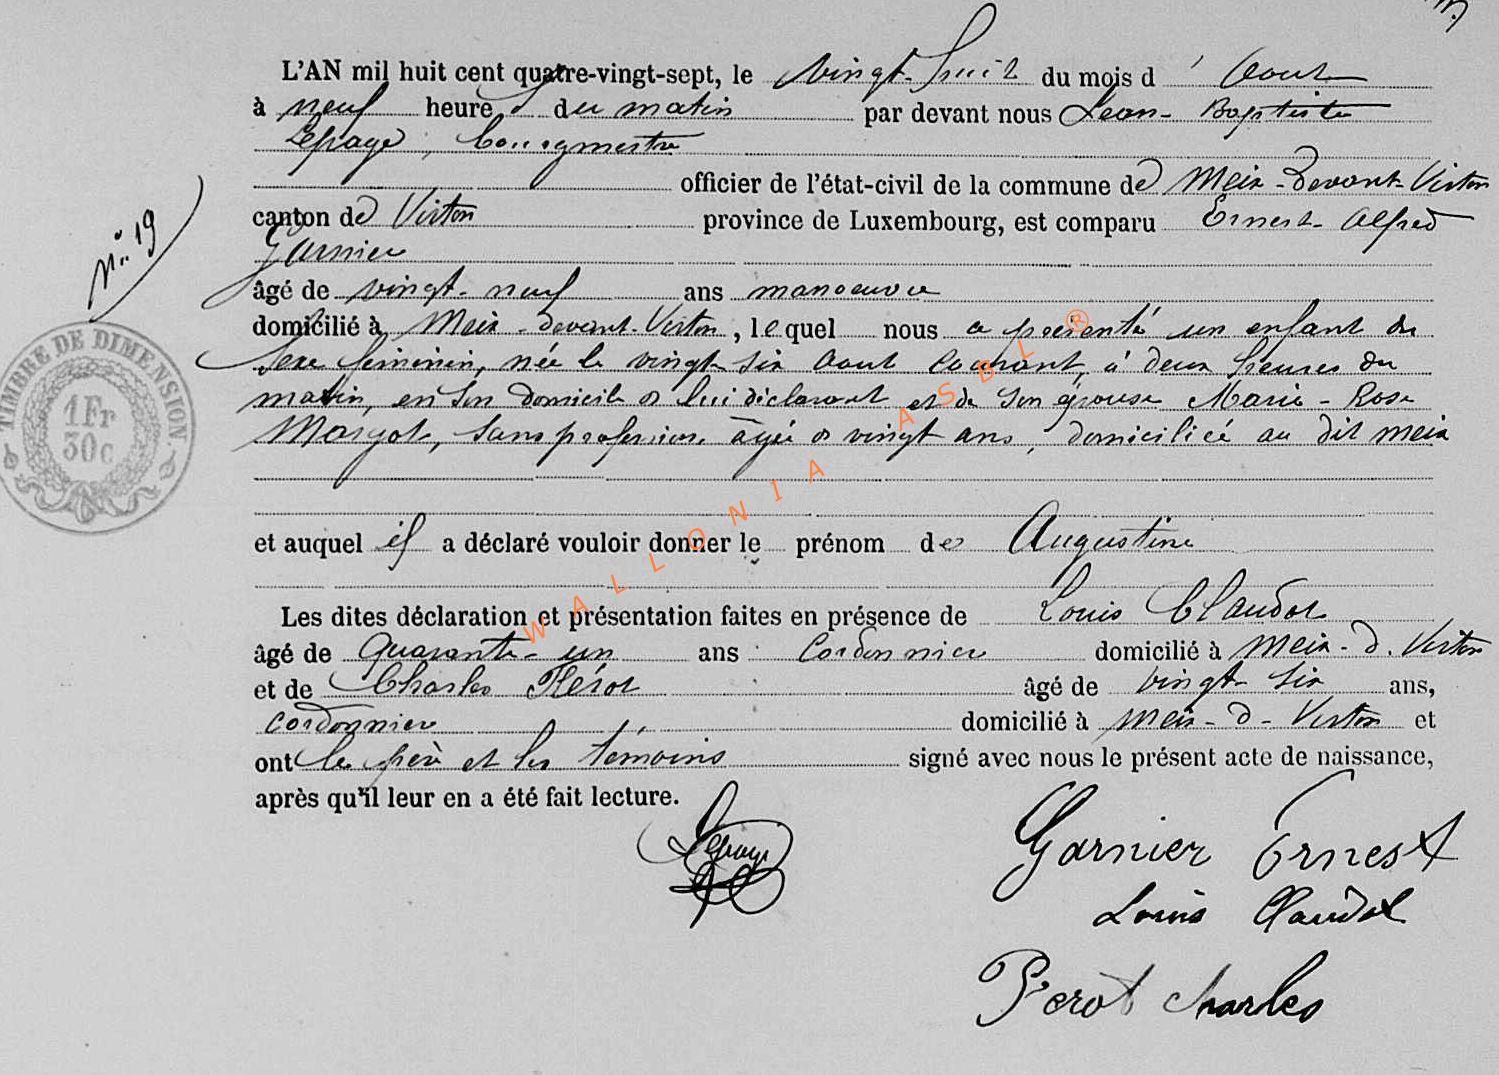 L'AN mil huit cent quatre-vingt-sept, le vingt-huit du mois d'Aout
à neuf heures du matin par devant nous Jean-Baptiste
Lepage, bourgmestre
officier de l'état-civil de la commune de Meix-devant-Virton
canton de Virton province de Luxembourg, est comparu Ernest-Alfred
Garnier
âgé de vingt-neuf ans manoeuvre
domicilié à Meix-devant-Virton, lequel nous a présenté un enfant du
sexe féminin, née le vingt-six Aout courant, à deux heures du
matin, en son domicile de lui déclarant et de son épouse Marie-Rose
Margot, sans profession âgée de vingt ans, domiciliée au dit meix
et auquel il a déclaré vouloir donner le prénom de Augustine
Les dites déclaration et présentation faites en présence de Louis Claudot
âgé de quarante-un ans cordonnier domicilié à Meix-d. Virton
et de Charles Pérot âgé de vingt-six ans,
cordonnier domicilié à Meix-d-Virton et
ont le père et les témoins signé avec nous le présent acte de naissance,
après qu'il leur en a été fait lecture.
Lepage
Garnier Ernest
Louis Claudot
Perot Charles
No 19
TIMBRE DE DIMENSION
1 Fr
30c
WALLONIA ASBL ®